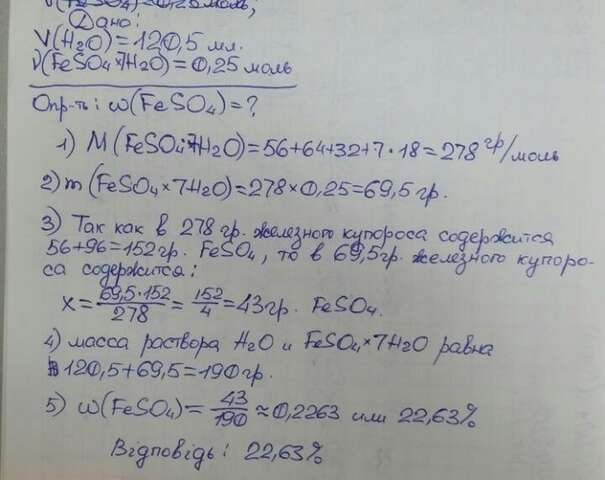 ν(FeSO₄)=0,25 моль;
Дано:
V(H₂O)=120,5 мл.
ν(FeSO₄×7H₂O)=0,25 моль
Опр-ть: ω(FeSO₄)=?
1) M(FeSO₄·7H₂O)=56+64+32+7·18=278 гр/моль
2) m(FeSO₄×7H₂O)=278×0,25=69,5 гр.
3) Так как в 278 гр. железного купороса содержится
56+96=152 гр. FeSO₄, то в 69,5 гр. железного купоро-
са содержится:
x=69,5·152/278=152/4=43 гр. FeSO₄.
4) масса раствора H₂O и FeSO₄×7H₂O равна
120,5+69,5=190 гр.
5) ω(FeSO₄)=43/190≈0,2263 или 22,63%
Відповідь: 22,63%